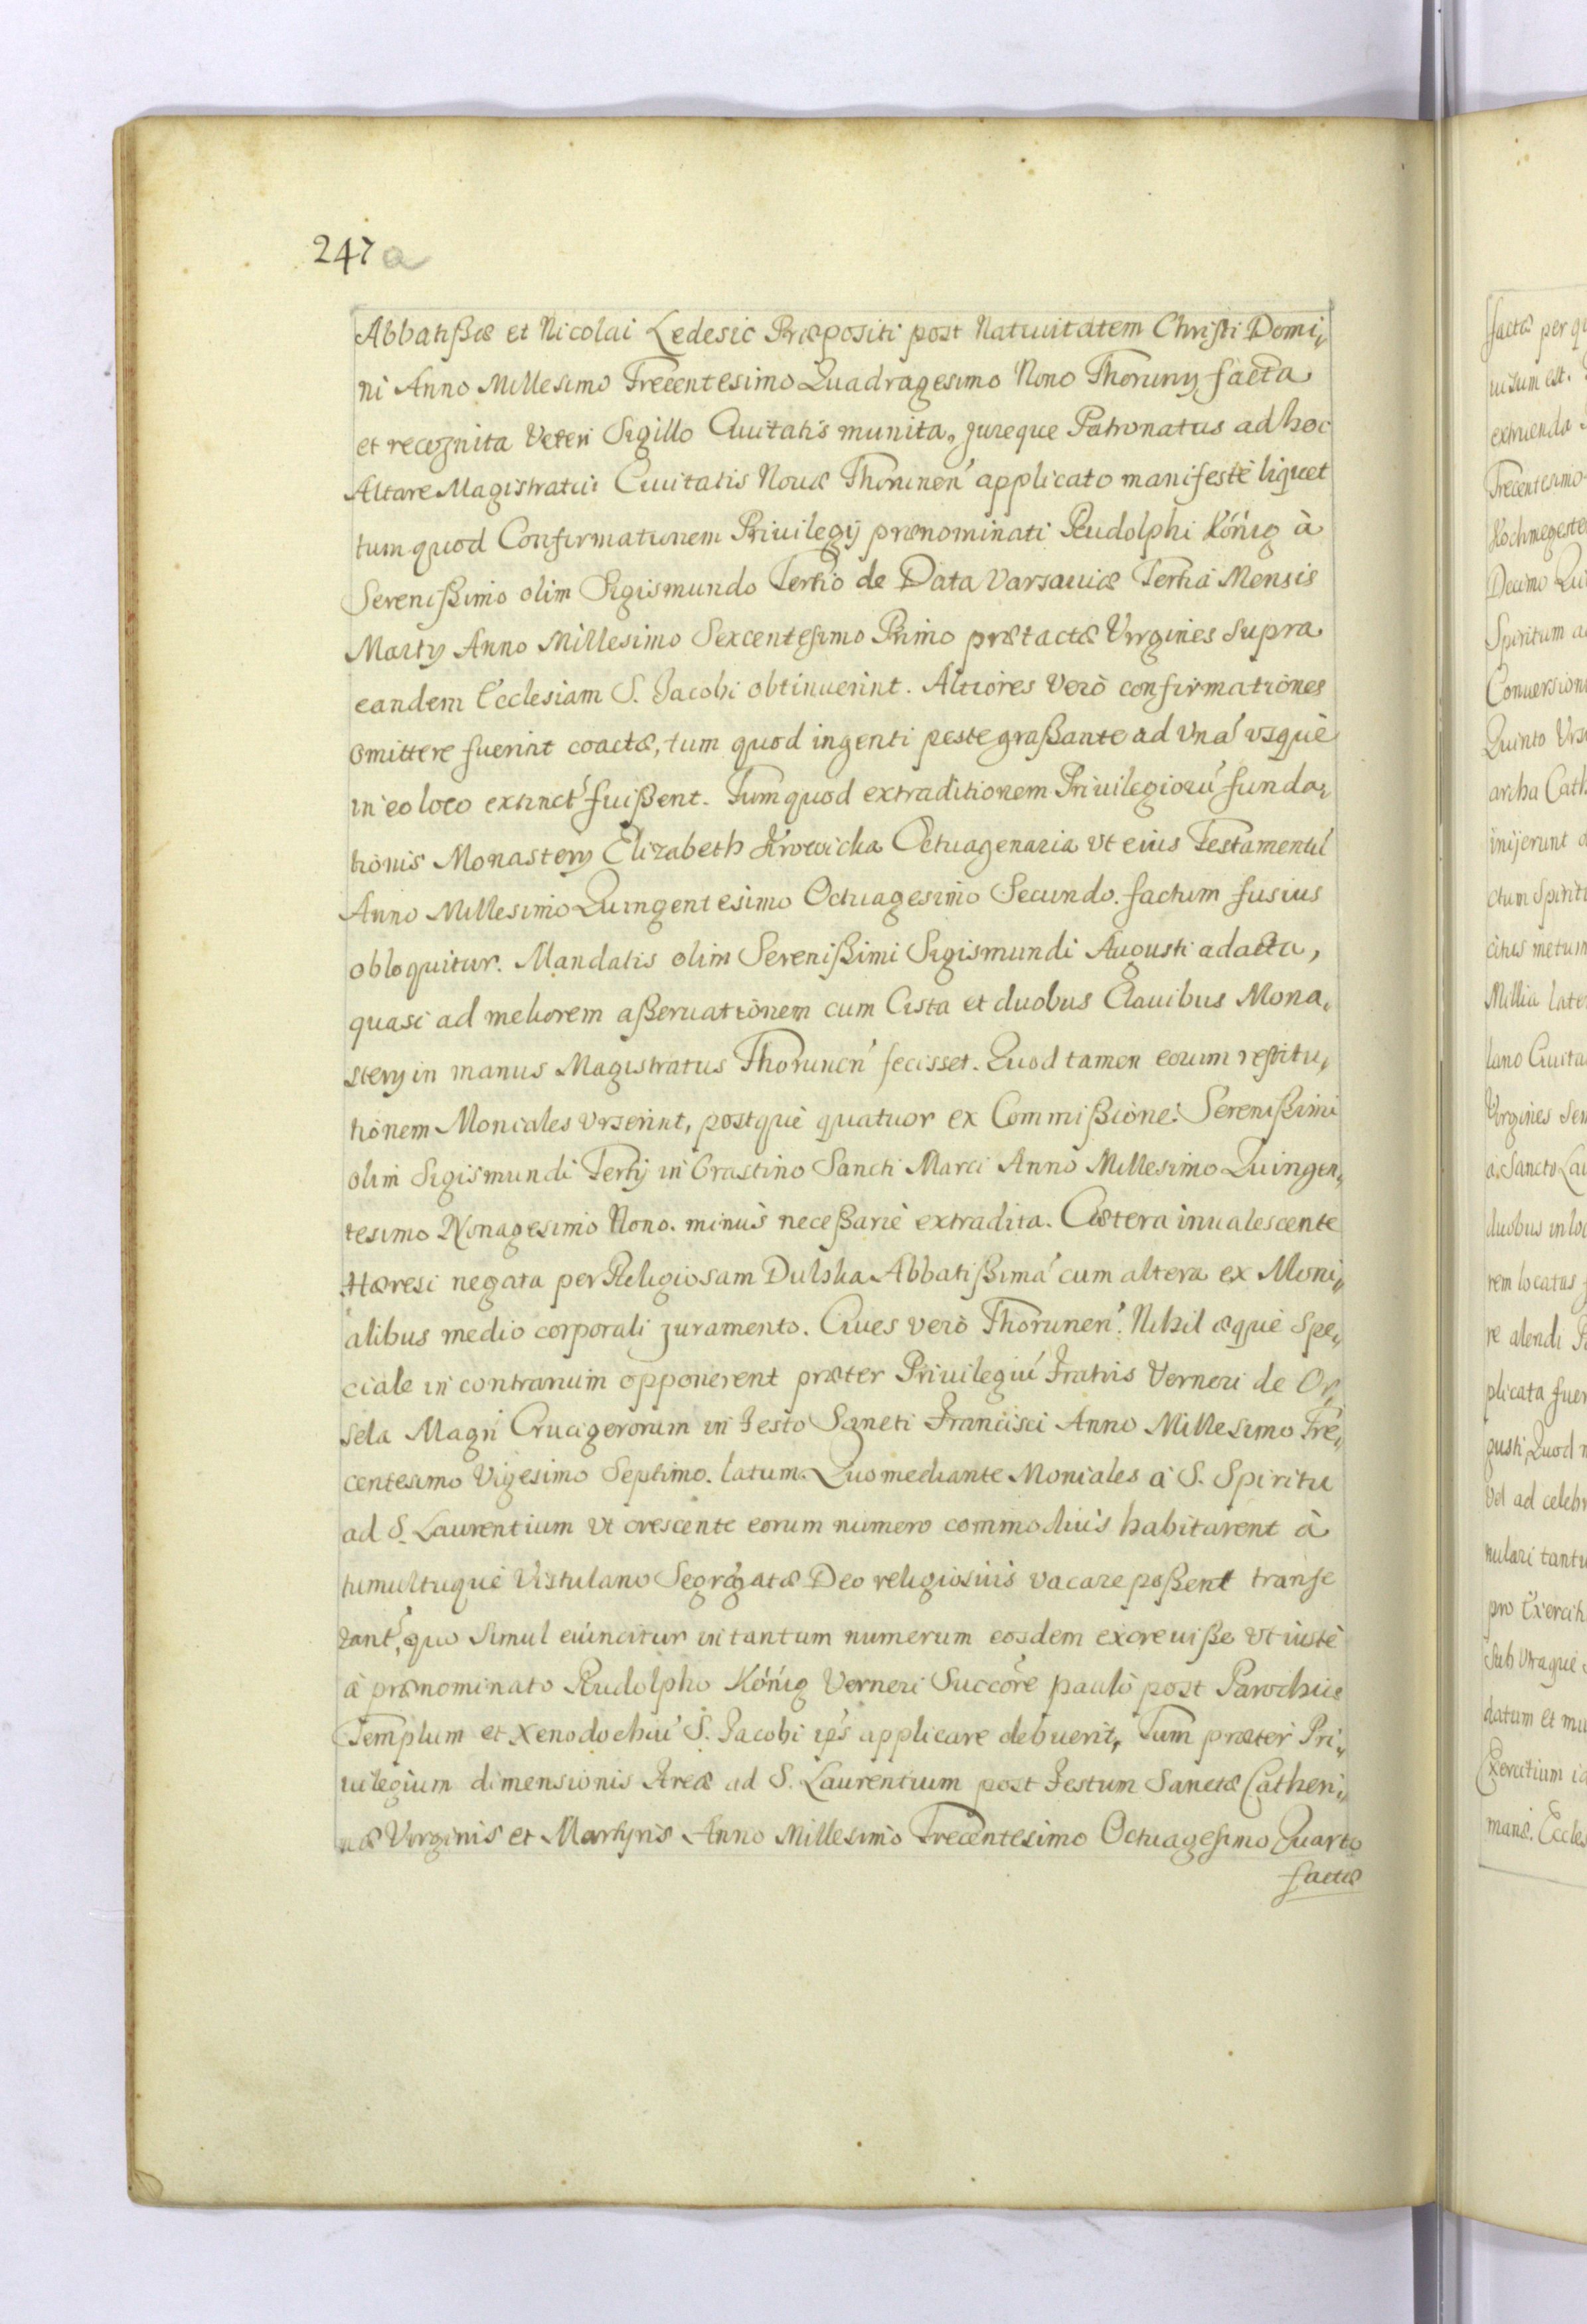 247a
Abbatißæ et Nicolai Ledesic Præpositi post Natiuitatem Christi Domi„
ni Anno Millesimo Trecentesimo Quadragesimo Nono Thoruny facta
et recognita Veteri Sigillo Ciuitatis munita, jureque Patronatus ad hoc
Altare Magistratui Ciuitatis Nouæ Thorunen' applicato manifestè liquet
tum quod Confirmationem Priuilegij prænominati Rudolphi König à
Sereniißimo olim Sigismundo Tertio de Data Varsauiæ Tertia Mensis
Marty Anno Millesimo Sexcentesimo Primo prætactæ Virgines supra
eandem Ecclesiam S. Jacobi obtinuerint. Altiores Verò confirmationes
omittere fuerint coactæ, tum quod ingenti peste graßante ad Vnā vsquè
in eo loco extinct' fuißent. Tum quod extraditionem Priuilegiorū funda„
tionis Monastery Elizabeth Krowicka Octuagenaria vt eius Testamentū
Anno Millesimo Quingentesimo Octuagesimo Secundo. factum fusius
obloquitur. Mandatis olim Sereniißimi Sigismundi Augusti adacta,
quasi ad meliorem aßeruationem cum Cista et duobus Clauibus Mona„
stery in manus Magistratus Thorunen' fecisset. Quod tamen eorum restitu„
tionem Moniales vrserint, postquè quatuor ex Commißione Sereniißimi
olim Sigismundi Tertij in Crastino Sancti Marci Anno Millesimo Quingen„
tesimo Nonagesimo Nono. minùs neceßariè extradita. Cætera inualescente
Hæresi negata per Religiosam Dulska Abbatißimā cum altera ex Moni„
alibus medio corporali juramento. Ciues verò Thorunen'. Nihil æquè Spe„
ciale in contrarium opponerent præter Priuilegiū Fratris Verneri de Or„
sela Magri Crucigerorum in Festo Sancti Francisci Anno Millesimo Tre„
centesimo Vigesimo Septimo. latum. Quo mediante Moniales à S. Spiritu
ad S. Laurentium vt crescente eorum numero commodiùs habitarent à
tumultuquè Vistulano Segregatæ Deo religiosiùs vacare poßent transfe
rant', quo simul euincitur in tantum numerum eosdem excreuiße vt iustè
à prænominato Rudolpho König Verneri Succore paulò post Parochiæ
Templum et Xenodochiū S. Jacobi ip's applicare debuerit, Tum præter Pri„
uilegium dimensionis Areæ ad S. Laurentium post Festum Sanctæ Catheri„
næ Virginis et Martyris Anno Millesimo Trecentesimo Octuagesimo Quarto
factæ